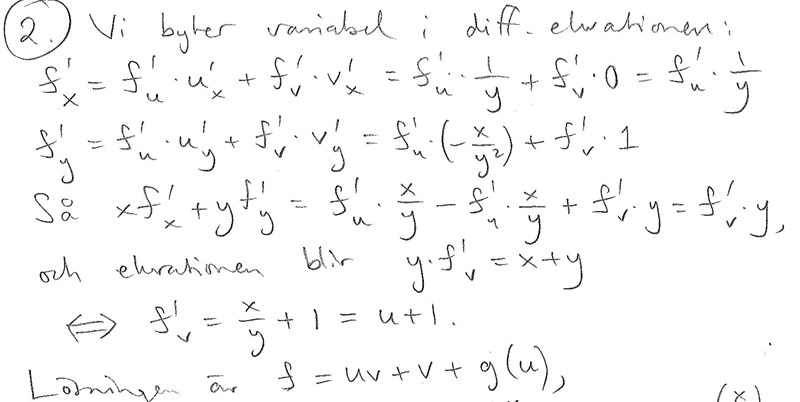 2. Vi byter variabel i diff. ekvationen:
f'_x = f'_u · u'_x + f'_v · v'_x = f'_u · 1/y + f'_v · 0 = f'_u · 1/y
f'_y = f'_u · u'_y + f'_v · v'_y = f'_u · (-x/y²) + f'_v · 1
Så xf'_x + yf'_y = f'_u · x/y - f'_u · x/y + f'_v · y = f'_v · y,
och ekvationen blir y · f'_v = x+y
⇔ f'_v = x/y + 1 = u+1.
Lösningen är f = uv+v+g(u),
(x)